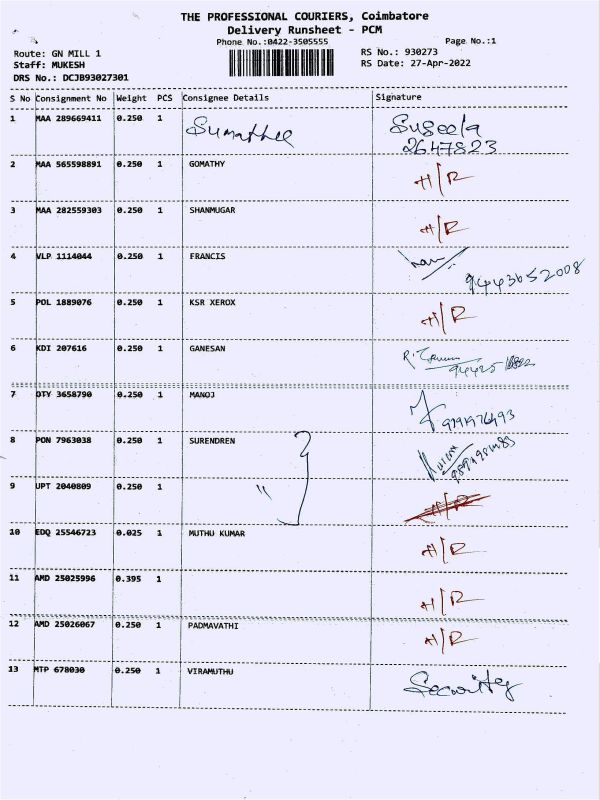 THE PROFESSIONAL COURIERS, Coimbatore
Delivery Runsheet - PCM
Phone No.:0422-3505555 Page No.:1
Route: GN MILL 1 RS No.: 930273
Staff: MUKESH RS Date: 27-Apr-2022
DRS No.: DCJB93027301
S No Consignment No Weight PCS Consignee Details Signature
1 MAA 289669411 0.250 1 Sumathee Suseela
2647823
2 MAA 565598891 0.250 1 GOMATHY H/R
3 MAA 282559303 0.250 1 SHANMUGAR H/R
4 VLP 1114044 0.250 1 FRANCIS
9443652008
5 POL 1889076 0.250 1 KSR XEROX H/R
6 KDI 207616 0.250 1 GANESAN
7 OTY 3658790 0.250 1 MANOJ
8 PON 7963038 0.250 1 SURENDREN
9 UPT 2040809 0.250 1 " H/R
10 EDQ 25546723 0.025 1 MUTHU KUMAR H/R
11 AMD 25025996 0.395 1 H/R
12 AMD 25026067 0.250 1 PADMAVATHI H/R
13 MTP 678030 0.250 1 VIRAMUTHU Security